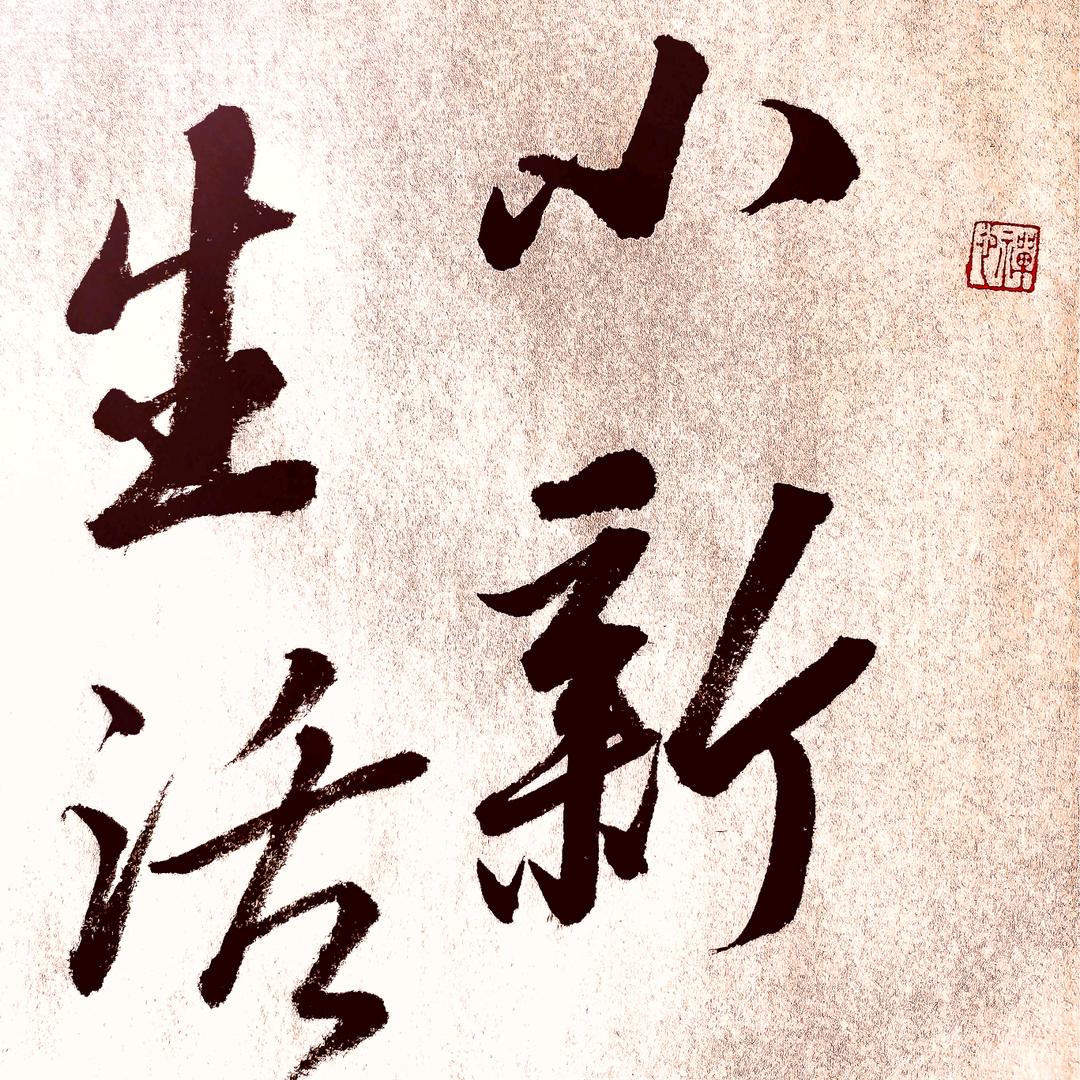 小新
生活